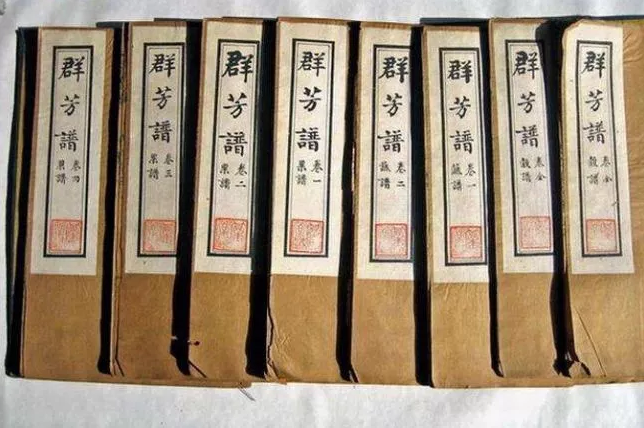 群芳譜
卷全
穀譜
群芳譜
卷全
穀譜
群芳譜
卷一
蔬譜
群芳譜
卷二
蔬譜
群芳譜
卷一
果譜
群芳譜
卷二
果譜
群芳譜
卷三
果譜
群芳譜
卷四
果譜